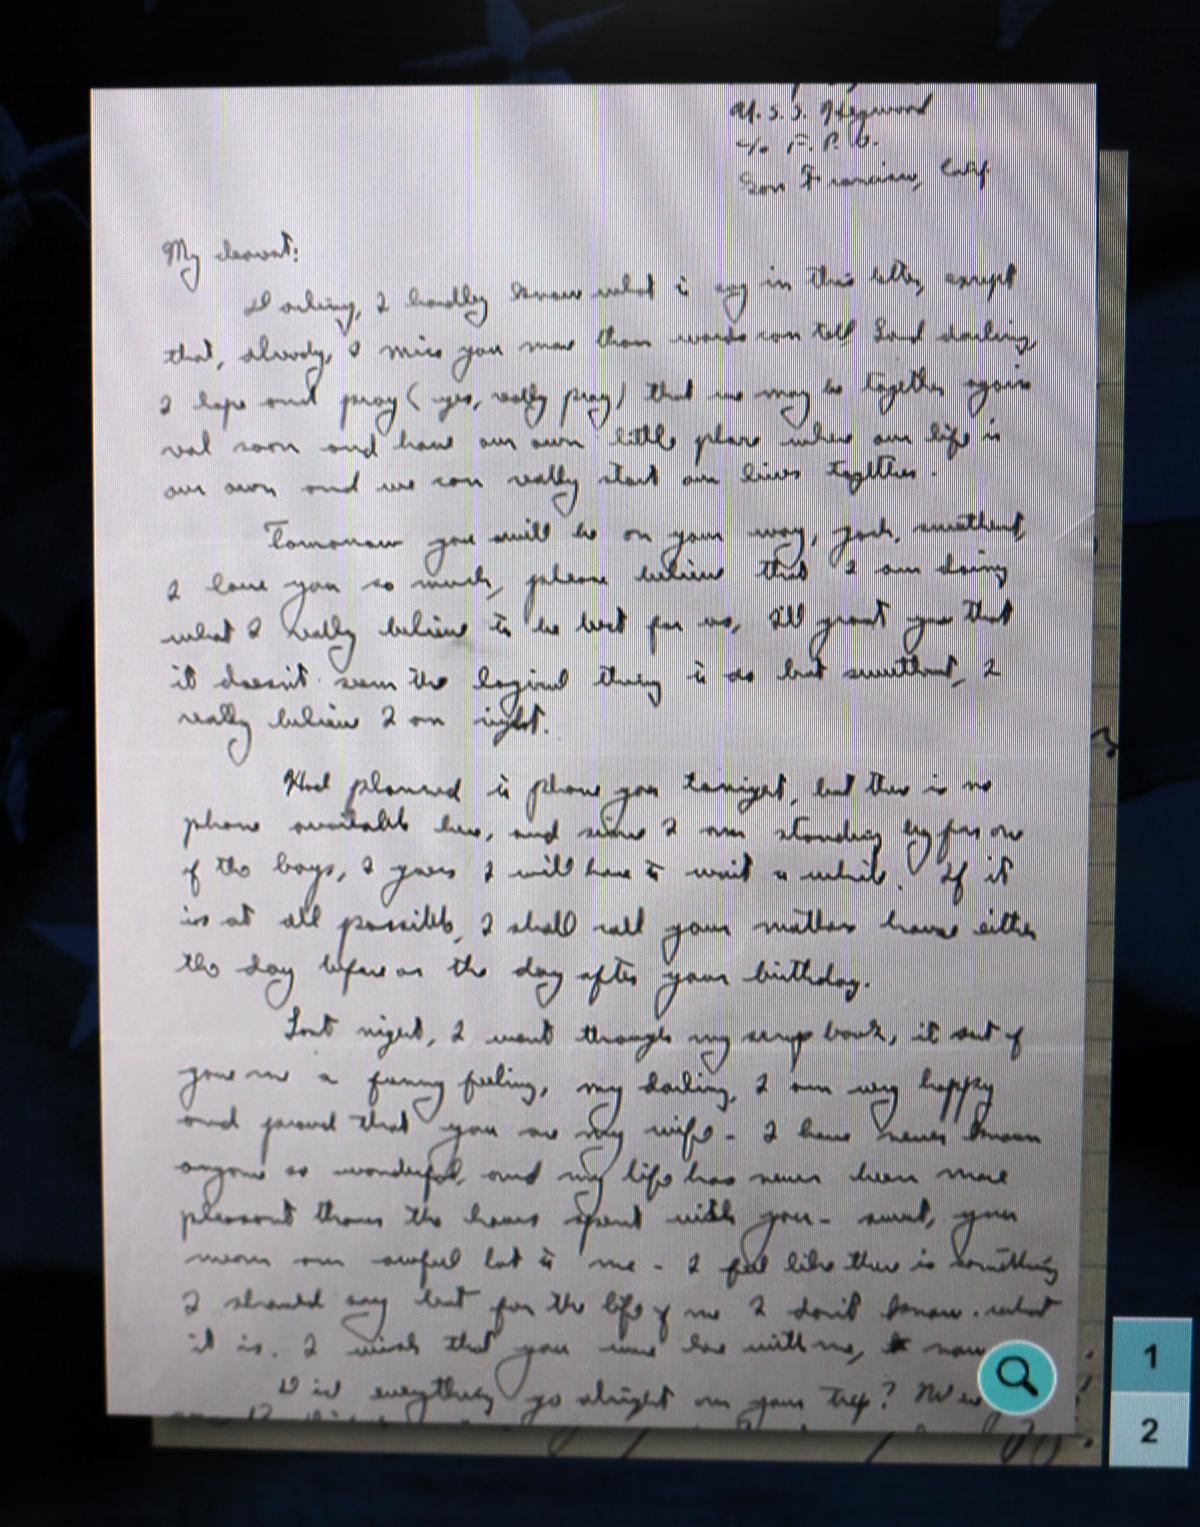 U.S.S. Heywood
c/o F.P.O.
San Francisco, Calif.
My dearest:
Darling, I hardly know what to say in this letter, except
that, already, I miss you more than words can tell and darling,
I hope and pray (yes, really pray) that we may be together again
real soon and have our own little place where our life is
our own and we can really start our lives together.
Tomorrow you will be on your way, gosh, sweetheart,
I love you so much, please believe that I am doing
what I really believe to be best for us, I'll grant you that
it doesn't seem the logical thing to do but sweetheart, I
really believe I am right.
Had planned to phone you tonight, but there is no
phone available here, and since I am standing by for one
of the boys, I guess I will have to wait a while. If it
is at all possible, I shall call your mothers house either
the day before or the day after your birthday.
Last night, I went through my scrap book, it sort of
gave me a funny feeling, my darling, I am very happy
and proud that you are my wife - I have never known
anyone so wonderful, and my life has never been more
pleasant than the hours spent with you - sweet, you
mean an awful lot to me - I feel like there is something
I should say but for the life of me I don't know what
it is. I wish that you were here with me, now
Did everything go alright on your trip?
1
2